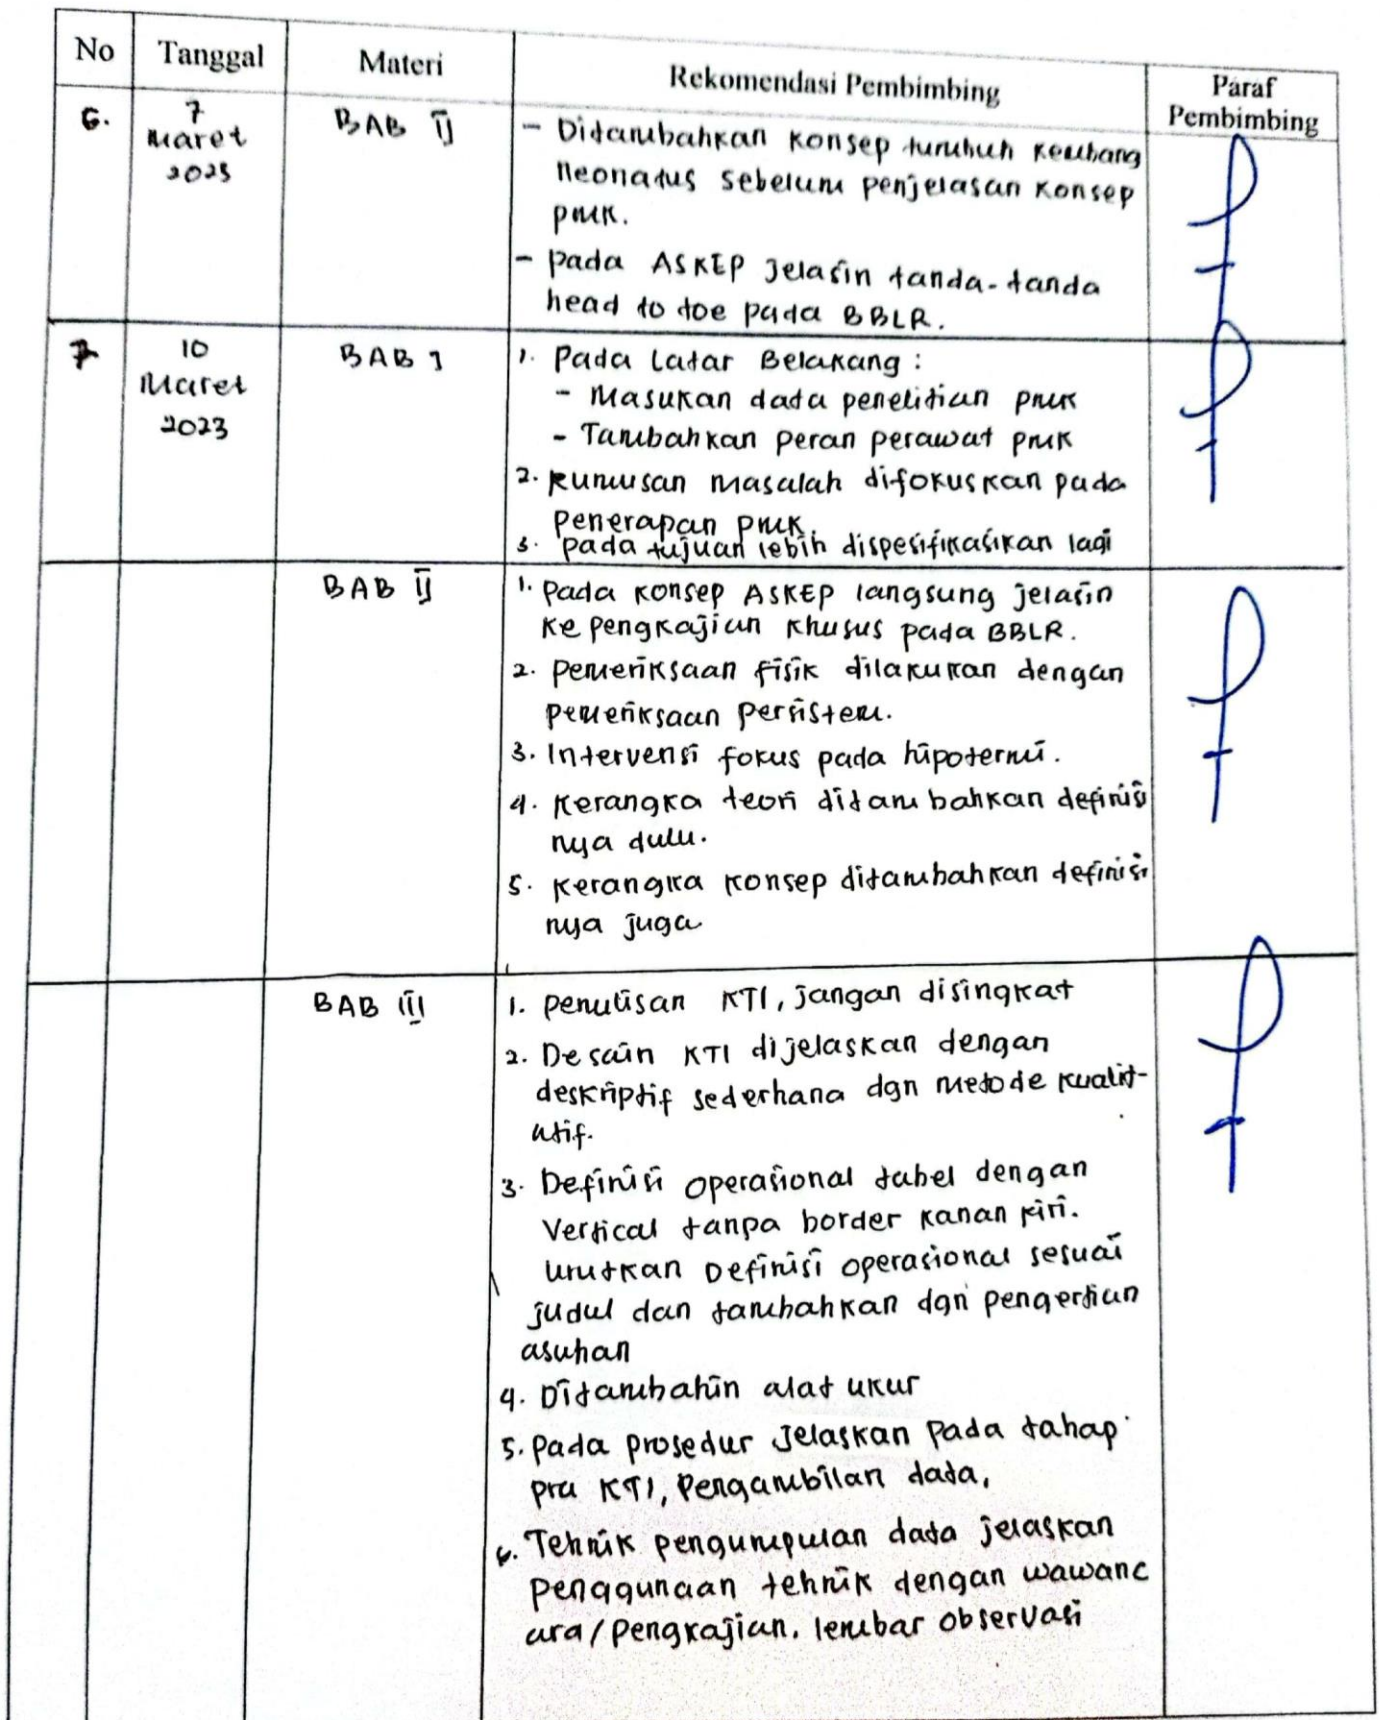 No Tanggal Materi Rekomendasi Pembimbing Paraf Pembimbing
6. 7 Maret 2023 BAB II
- Ditambahkan konsep tumbuh kembang
neonatus sebelum penjelasan konsep
PMK.
- pada ASKEP jelasin tanda-tanda
head to toe pada BBLR.
7 10 Maret 2023 BAB 1
1. Pada Latar Belakang :
- Masukan data penelitian PMK
- Tambahkan peran perawat PMK
2. Rumusan masalah difokuskan pada
Penerapan PMK.
3. pada tujuan lebih dispesifikasikan lagi
BAB II
1. Pada konsep ASKEP langsung jelasin
ke pengkajian khusus pada BBLR.
2. pemeriksaan fisik dilakukan dengan
pemeriksaan persistem.
3. Intervensi fokus pada hipotermi.
4. Kerangka teori ditambahkan definisi
nya dulu.
5. Kerangka konsep ditambahkan definisi
nya juga
BAB III
1. penulisan KTI, jangan disingkat
2. Desain KTI dijelaskan dengan
deskriptif sederhana dgn metode kualit-
atif.
3. Definisi operasional tabel dengan
Vertical tanpa border kanan kiri.
urutkan Definisi operasional sesuai
judul dan tambahkan dgn pengertian
asuhan
4. Ditambahin alat ukur
5. Pada prosedur Jelaskan Pada tahap
pra KTI, Pengambilan data,
6. Tehnik pengumpulan data jelaskan
penggunaan tehnik dengan wawanc
ara/pengkajian. lembar observasi